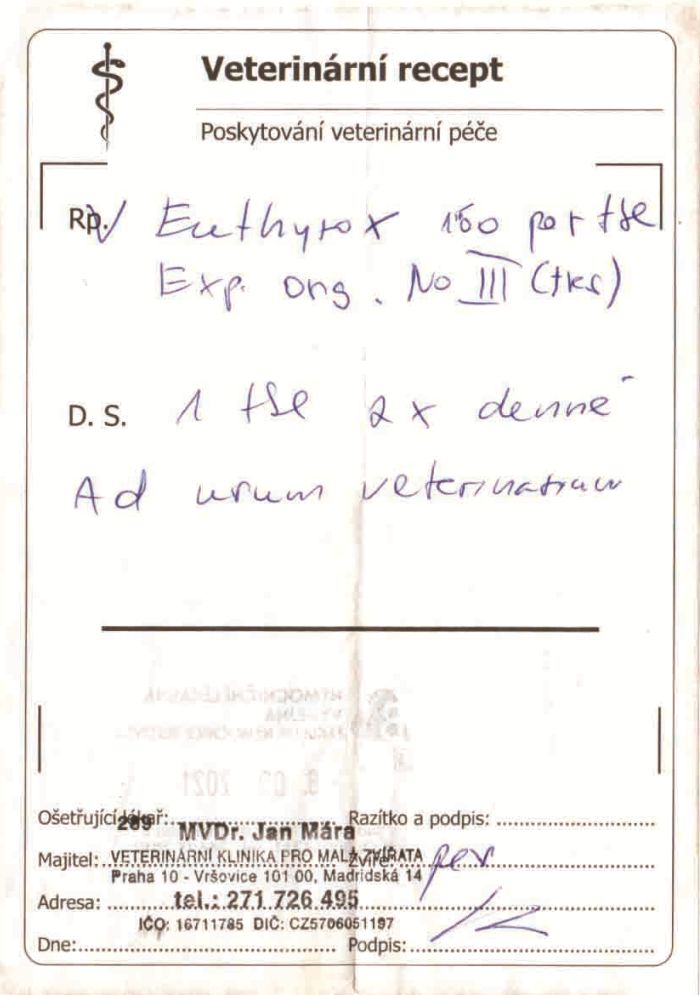 Veterinární recept
Poskytování veterinární péče
Rp. Euthyrox 150 por tbl
Exp. orig. No III (tres)
D. S. 1 tbl 2x denně
Ad usum veterinarium
8. 09 2021
Ošetřující lékař: Razítko a podpis:
289
MVDr. Jan Mára
Majitel: Zvíře: pes
VETERINÁRNÍ KLINIKA PRO MALÁ ZVÍŘATA
Praha 10 - Vršovice 101 00, Madridská 14
Adresa:
tel.: 271 726 495
IČO: 16711785 DIČ: CZ5706051197
Dne: Podpis: